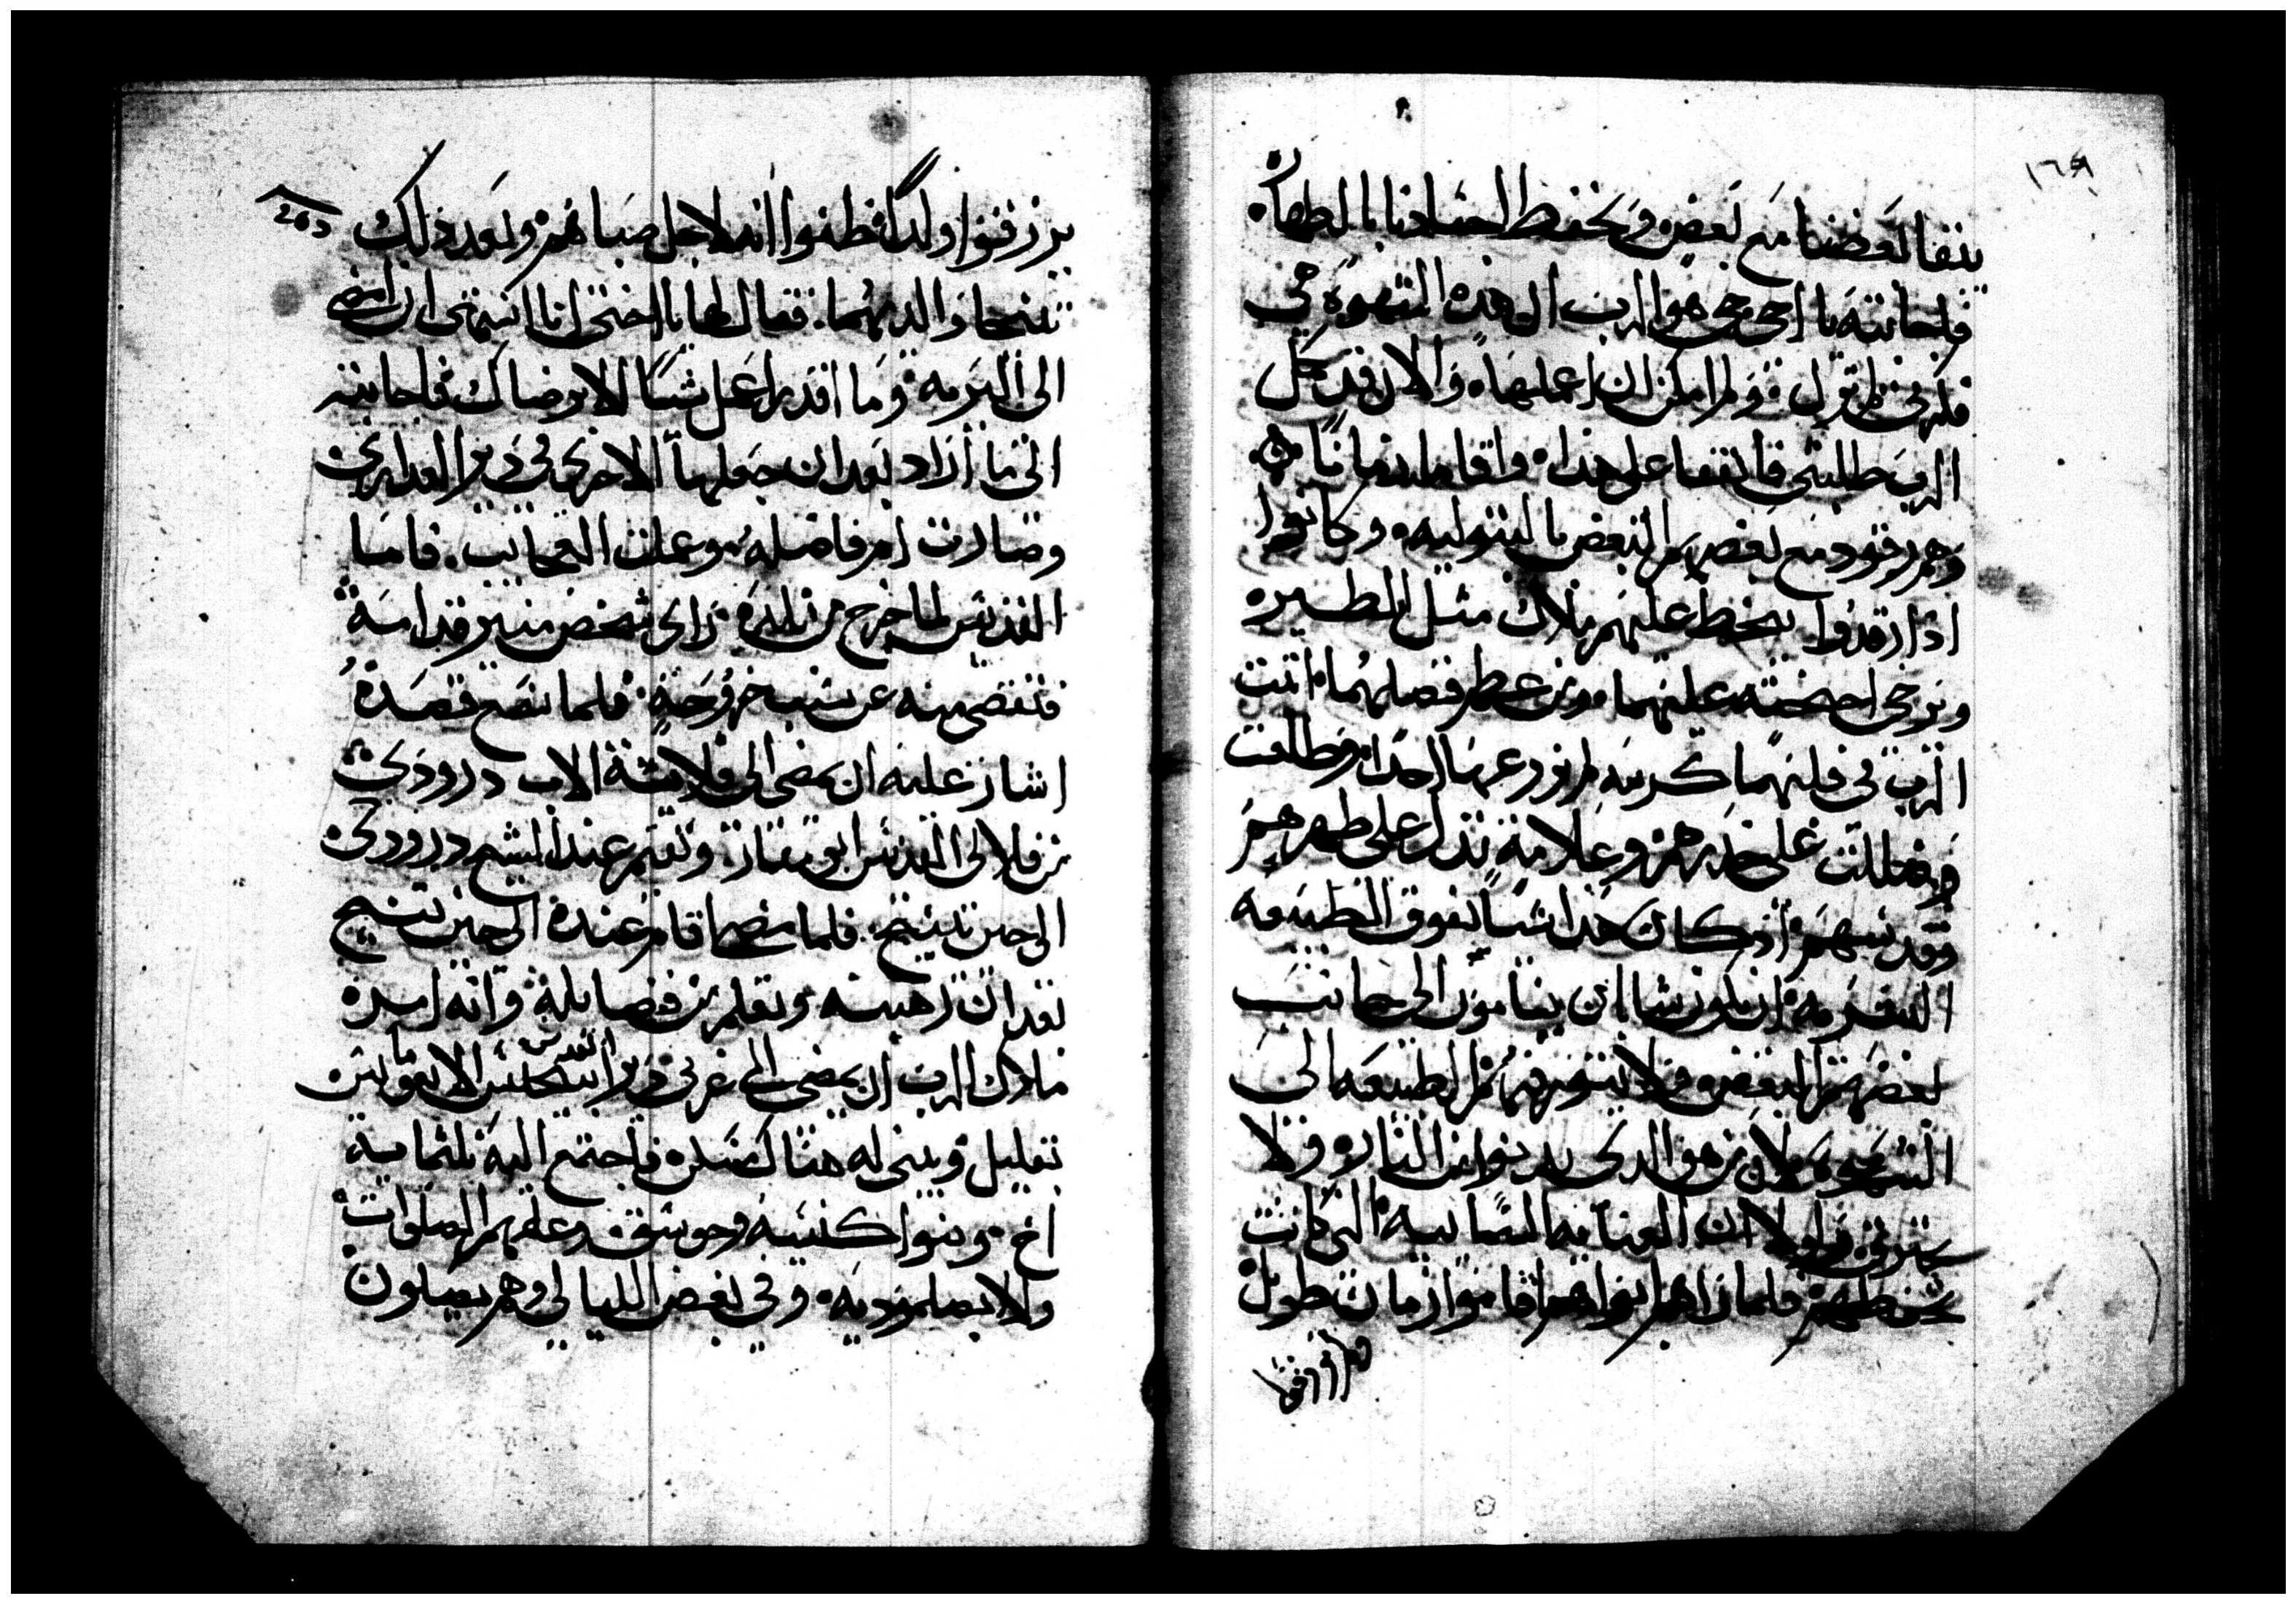 ١٦٩
يتفا بعضنا مع بعض ونحفظ اجسادنا بالطهاره
فاجابته يا اخي حي هو الرب ان هذه الشهوه في
قلبي ولم يمكن ان اعملها والان فقد كمل
الرب طلبتي فاتفقا على هذا واقاما زمانا
وهم رقود مع بعضهم البعض بالبتوليه وكانوا
اذا رقدوا يحط عليهم ملاك مثل الطير
ويرخي اجنحته عليهما ومن عظم فضلهما انبت
الرب في قلبهما كرمه لم يزرعها احد وطلعت
وظللت على خدرهم وعلامة تدل على طهرهم
وقدسهم اذ كان هذا شيا يفوق الطبيعه
البشريه ان يكون شابان يناموا الى جانب
بعضهم البعض ولا تتحرك فيهم الطبيعه الى
الشهوه لان من هو الذي يدنوا من النار ولا
يحترق لولا ان العنايه السمائيه التي كانت
تحفظهم فلما راهم ابواهم اقاموا زمان طويل
ولم يرزقوا
263
يرزقوا ولدا فظنوا انه لاجل صباهم وبعد ذلك
تنيحا والديهما فقال لها يا اختي انا اشتهي ان امضي
الى البريه وما اقدر اعمل شيا الا برضاك فاجابته
الى ما اراد بعد ان جعلها الاخرى في دير العدارى
وصارت ام فاضله وعملت العجائب فاما
القديس لما خرج من بلده راى شخص منير قدامه
فتقصى منه عن سبب خروجه فلما تصح قصده
اشار عليه ان يمضي الى قلاية الاب درودي
من قلالي القديس ابو مقار ويقيم عند الشيخ درودي
الى حين يتنيح فلما مضى اقام عنده الى حين تنيح
بعد ان رهبنه وتعلم من فضايله وانه امره
ملاك الرب ان يمضي الى غربي دير القديس الانبا
بقليل ويبني له هناك مسكن فاجتمع اليه ثلثماية
اخ وبنوا كنيسه وجوسق وعلمهم الصلوات
والابصلموديه وفي بعض الليالي وهم يصلون